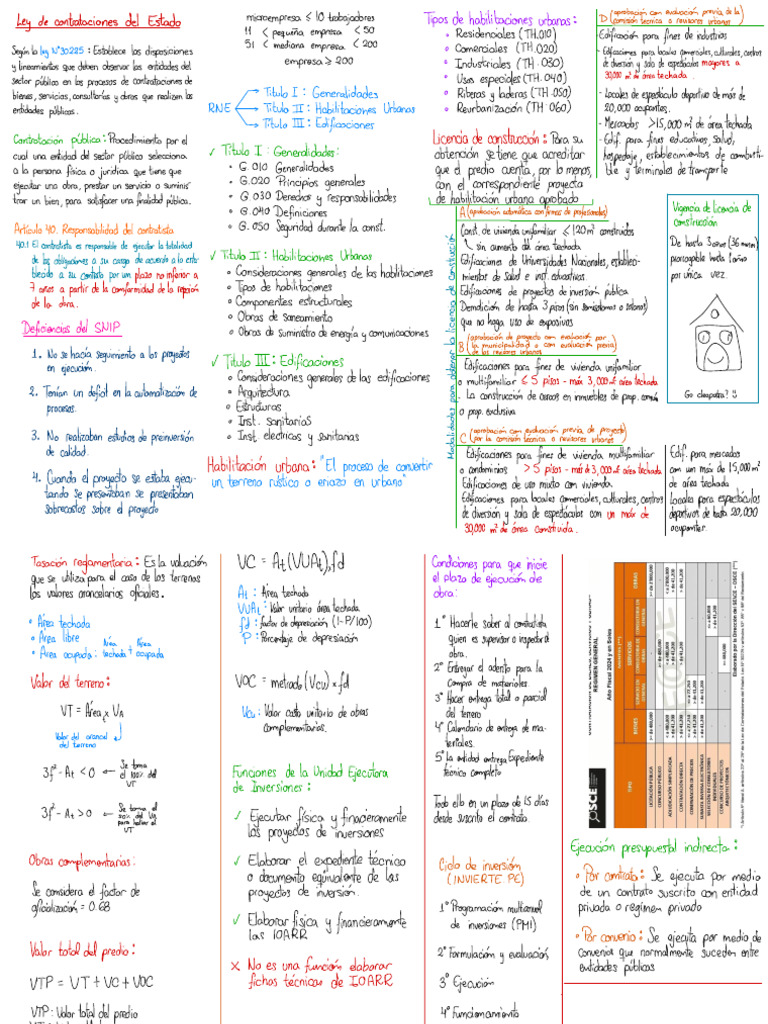 Ley de contrataciones del Estado
Según la ley N°30225: Establece las disposiciones
y lineamientos que deben observar las entidades del
sector público en los procesos de contrataciones de
bienes, servicios, consultorías y obras que realizan las
entidades públicas.
Contratación pública: Procedimiento por el
cual una entidad del sector público selecciona
a la persona física o jurídica que tiene que
ejecutar una obra, prestar un servicio o suminis
trar un bien, para satisfacer una finalidad pública.
Artículo 40. Responsabilidad del contratista
40.1 El contratista es responsable de ejecutar la totalidad
de las obligaciones a su cargo de acuerdo a lo esta
blecido a su contrato por un plazo no inferior a
7 años a partir de la comformidad de la repción
de la obra.
Deficiencias del SNIP
1. No se hacía seguimiento a los proyectos
en ejecución.
2. Tenían un deficit en la automatización de
procesos.
3. No realizaban estudios de preinversión
de calidad.
4. Cuando el proyecto se estaba ejecu-
tando se presentaban se presentaban
sobrecostos sobre el proyecto
microempresa ≤ 10 trabajadores
11 < pequeña empresa < 50
51 < mediana empresa < 200
empresa ≥ 200
RNE
Titulo I : Generalidades
Titulo II : Habilitaciones Urbanas
Titulo III : Edificaciones
✓ Titulo I : Generalidades:
• G.010 Generalidades
• G.020 Principios generales
• G.030 Derechos y responsabilidades
• G.040 Definiciones
• G.050 Seguridad durante la const.
✓ Titulo II : Habilitaciones Urbanas
• Consideraciones generales de las habilitaciones
• Tipos de habilitaciones
• Componentes estructurales
• Obras de saneamiento
• Obras de suministro de energía y comunicaciones
✓ Titulo III : Edificaciones
• Consideraciones generales de las edificaciones
• Arquitectura
• Estructuras
• Inst. sanitarias
• Inst. electricas y sanitarias
Habilitación urbana: "El proceso de convertir
un terreno rústico o eriazo en urbano"
Tipos de habilitaciones urbanas:
• Residenciales (TH.010)
• Comerciales (TH.020)
• Industriales (TH.030)
• Usos especiales (TH.040)
• Riberas y laderas (TH.050)
• Reurbanización (TH 060)
Licencia de construcción: Para su
obtención se tiene que acreditar
que el predio cuenta, por lo menos
con el correspondiente proyecto
de habilitación urbana aprobado
Modalidades para obtener la licencia de construcción
A (aprobación automática con firmas de profesionales)
Const. de vivienda unifamiliar ≤ 120 m² construidos
sin aumento de área techada.
Edificaciones de Universidades Nacionales, estableci-
mientos de Salud e inst. educativas.
Edificaciones de proyectos de inversión pública
Demolición de hasta 3 pisos (sin semisótanos o sótanos)
que no haga uso de exposivos
B (aprobación de proyecto con evaluación por
la municipalidad o con evaluación previa
de los revisores urbanos
Edificaciones para fines de vivienda unifamiliar
o multifamiliar ≤ 5 pisos - máx 3,000 m² área techada
- La construcción de cercos en inmuebles de prop. común
o prop. exclusiva
C (aprobación con evaluación previa de proyecto)
por la comisión técnica o revisores urbanos
Edificaciones para fines de vivienda multifamiliar
o condominios > 5 pisos - más 3,000 m² área techada
Edificaciones de uso mixto con vivienda.
Edificaciones para locales comerciales, culturales, centros
de diversión y sala de espectáculos con un máx de
30,000 m² de área construida.
Edif. para mercados
con un máx de 15,000 m²
de área techada
Locales para espectáculos
deportivos de hasta 20,000
ocupantes.
D (aprobación con evaluación previa de la
comisión técnica o revisores urbanos
-Edificación para fines de industrias
-Edificaciones para locales comerciales, culturales, centros
de diversión y sala de espectáculos mayores a
30,000 m² de área techada.
- Locales de espectáculo deportivo de más de
20,000 ocupantes.
- Mercados > 15,000 m² de área techada
- Edif. para fines educativos, salud,
hospedaje, establecimientos de combusti-
ble y terminales de transporte
Vigencia de licencia de
construcción
De hasta 3 años (36 meses)
prorrogable hasta 1 año
por única vez.
Go cleopatra? :)
Tasación reglamentaria: Es la valuación
que se utiliza para el caso de los terrenos
los valores arancelarios oficiales.
• Área techada
• Área libre
• Área ocupada: Área techada + Área ocupada
Valor del terreno:
VT = Área x VA
Valor del arancel
del terreno
3f² - At < 0 ← Se toma
el 100% del
VT
3f² - At > 0 ← Se toma el
VT
Obras complementarias:
Se considera el factor de
oficialización = 0.68
Valor total del predio:
VTP = VT + VC + VOC
VTP: Valor total del predio
VC = At (VUAt), fd
At : Área techada
VUAt : Valor unitario área techada
fd : factor de depreciación (1-P/100)
P : Porcentaje de depresiación
VOC = metrado (Vcu) x fd
Vcu : Valor costo unitario de obras
complementarias.
Funciones de la Unidad Ejecutora
de Inversiones:
✓ Ejecutar físico y financieramente
los proyectos de inversiones
✓ Elaborar el expediente técnico
o documento equivalente de los
proyectos de inversión.
✓ Elaborar física y financieramente
las IOARR
x No es una función elaborar
fichas técnicas de IOARR
Condiciones para que inicie
el plazo de ejecución de
obra:
1° Hacerle saber al contratista
quien es supervisor o inspector de
obra.
2° Entregar el adelanto para la
compra de materiales.
3° Hacer entrega total o parcial
del terreno
4° Calendario de entrega de ma-
teriales.
5° La entidad entrega Expediente
técnico completo
Todo ello en un plazo de 15 días
desde suscrita el contrato
Ciclo de inversión
(INVIERTE PE)
1° Programación multianual
de inversiones (PMI)
2° Formulación y evaluación
3° Ejecución
4° Funcionamiento
OSCE
RÉGIMEN GENERAL
Año Fiscal 2024 y en Soles
TIPO
BIENES
SERVICIOS
OBRAS
LICITACIÓN PÚBLICA
CONCURSO PÚBLICO
ADJUDICACIÓN SIMPLIFICADA
CONTRATACIÓN DIRECTA
COMPARACIÓN DE PRECIOS
SUBASTA INVERSA ELECTRÓNICA
Ejecución presupuestal indirecta:
• Por contrata: Se ejecuta por medio
de un contrato suscrito con entidad
privada o regimen privado
• Por convenio: Se ejecuta por medio de
convenios que normalmente suceden entre
entidades públicas